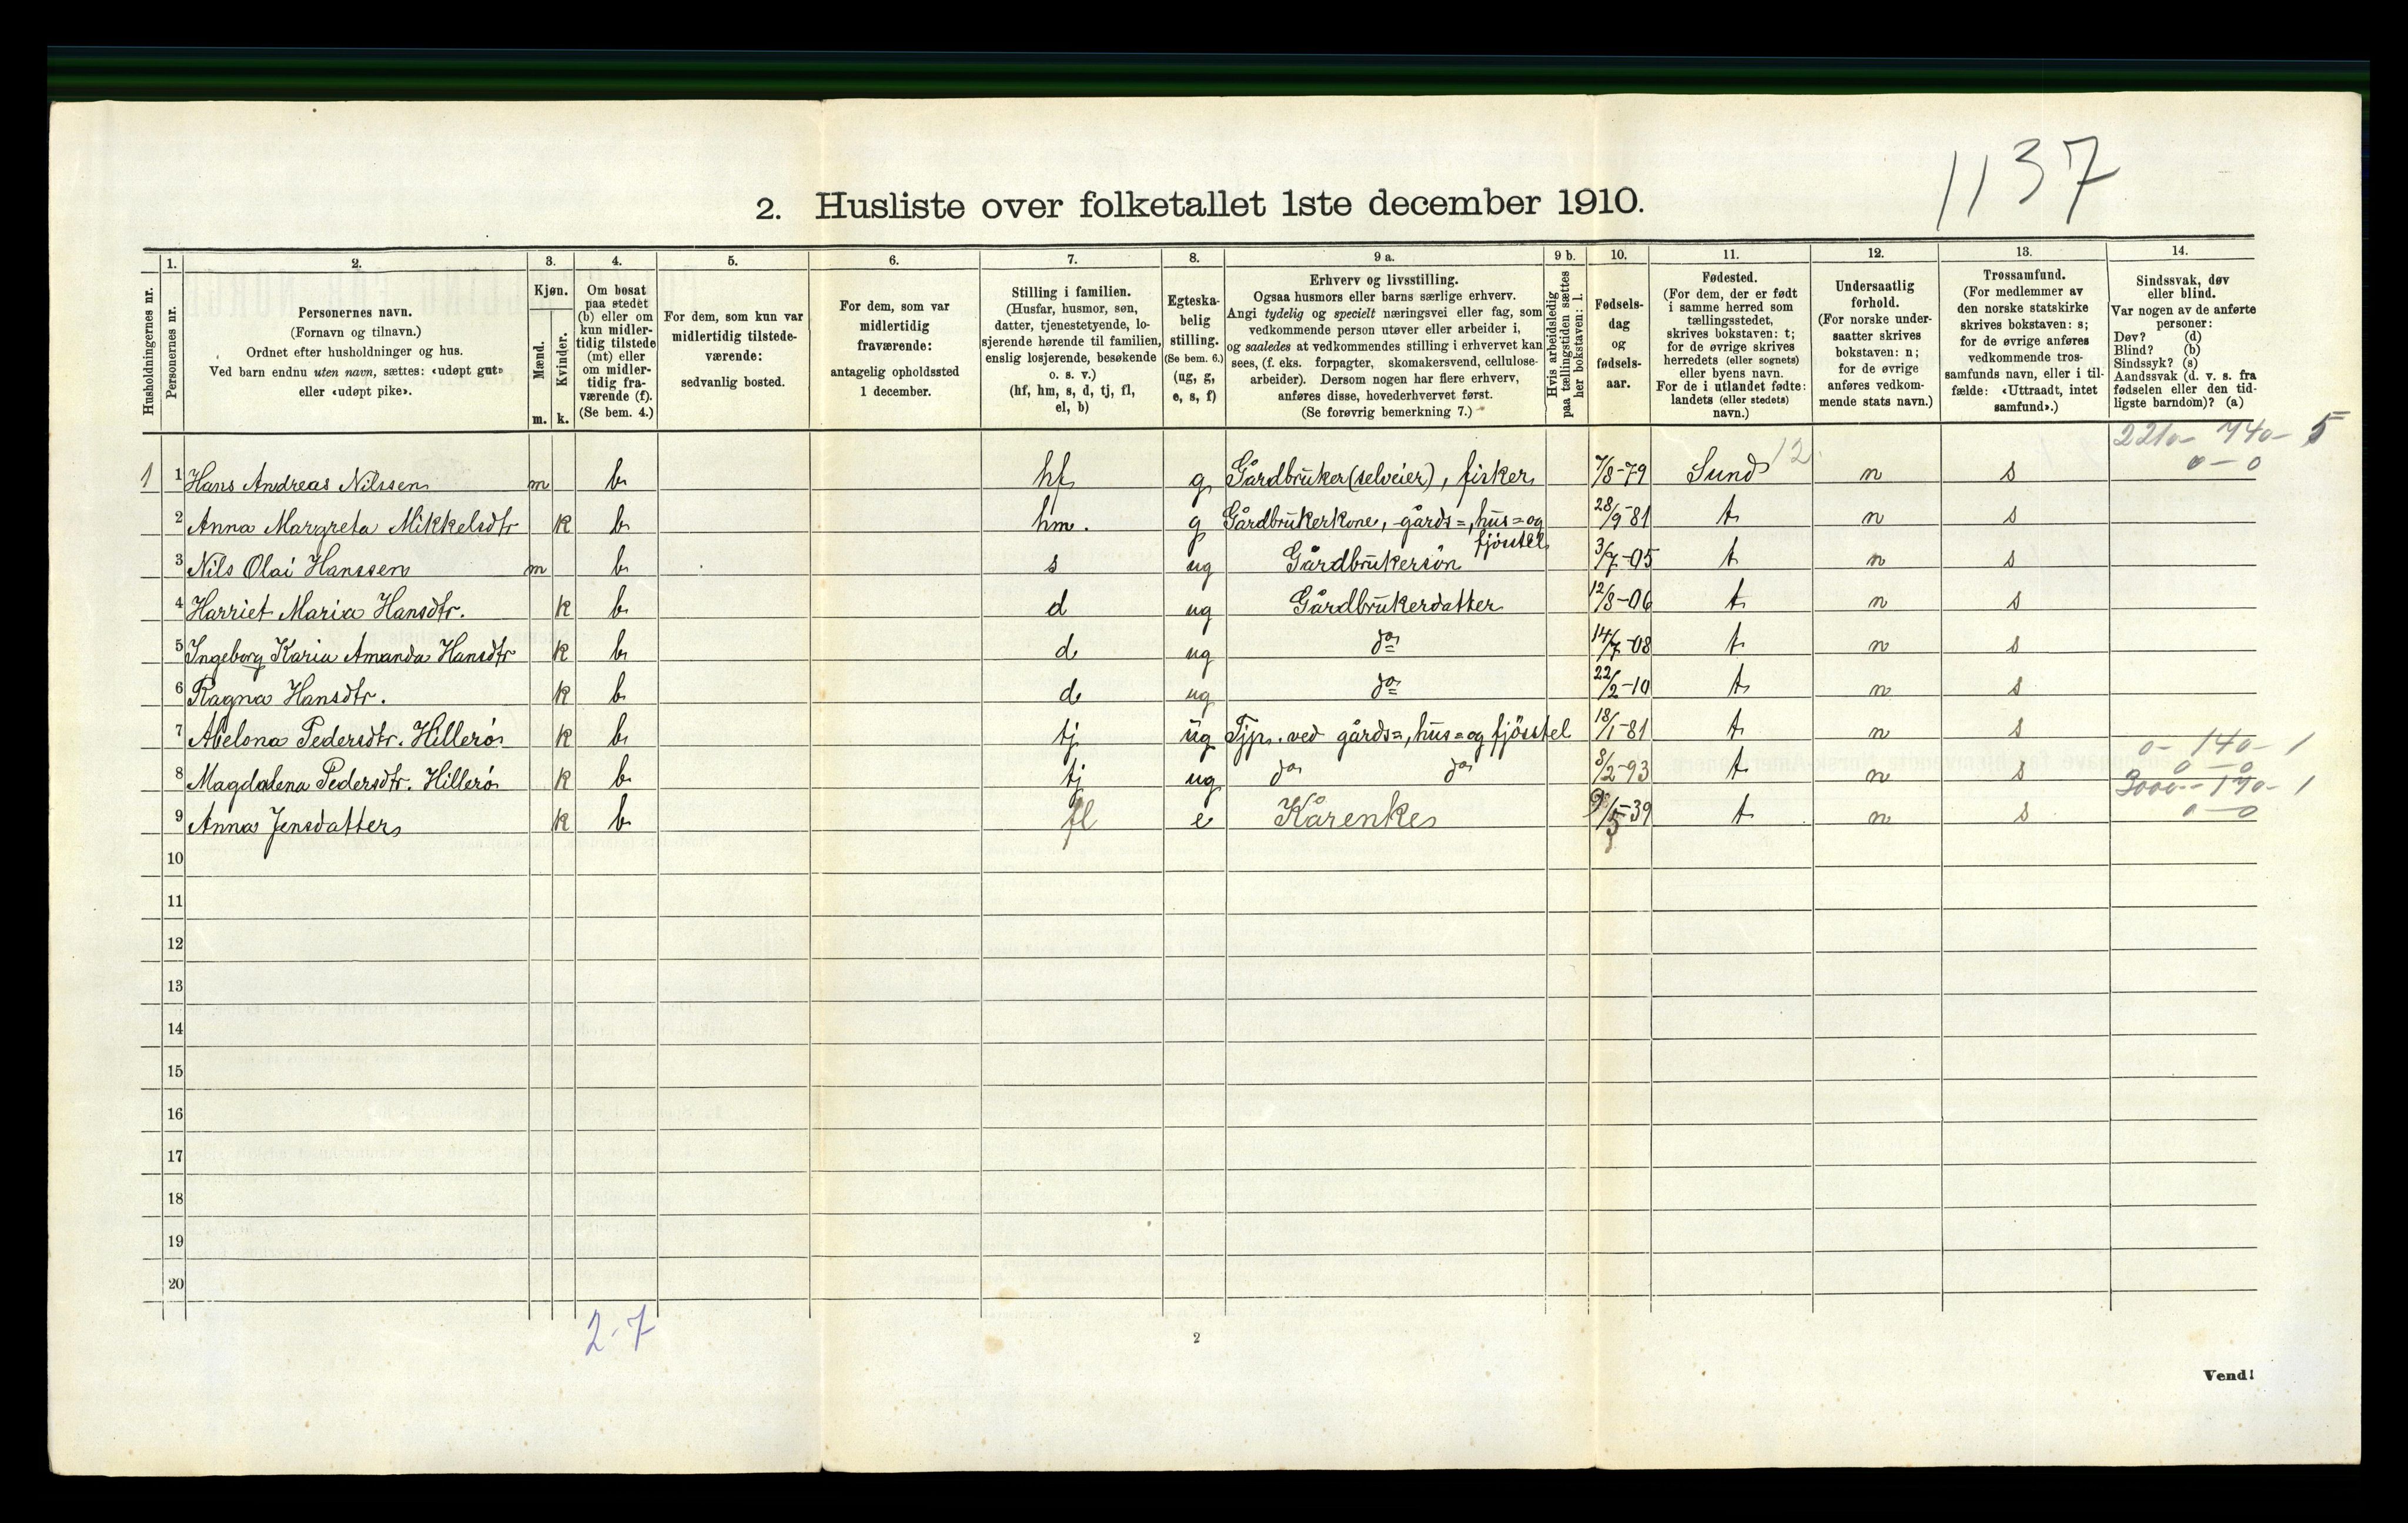 1137
2. Husliste over folketallet 1ste december 1910.
Husholdningernes nr.
1.
Personernes nr.
2.
Personernes navn.
(Fornavn og tilnavn.)
Ordnet efter husholdninger og hus.
Ved barn endnu uten navn, sættes: «udøpt gut»
eller «udøpt pike».
3.
Kjøn.
Mænd.
Kvinder.
m. k.
4.
Om bosat
paa stedet
(b) eller om
kun midler-
tidig tilstede
(mt) eller
om midler-
tidig fra-
værende (f).
(Se bem. 4.)
5.
For dem, som kun var
midlertidig tilstede-
værende:
sedvanlig bosted.
6.
For dem, som var
midlertidig
fraværende:
antagelig opholdssted
1 december.
7.
Stilling i familien.
(Husfar, husmor, søn,
datter, tjenestetyende, lo-
sjerende hørende til familien,
enslig losjerende, besøkende
o. s. v.)
(hf, hm, s, d, tj, fl,
el, b)
8.
Egteska-
belig
stilling.
(Se bem. 6.)
(ug, g,
e, s, f)
9 a.
Erhverv og livsstilling.
Ogsaa husmors eller barns særlige erhverv.
Angi tydelig og specielt næringsvei eller fag, som
vedkommende person utøver eller arbeider i,
og saaledes at vedkommendes stilling i erhvervet kan
sees, (f. eks. forpagter, skomakersvend, cellulose-
arbeider). Dersom nogen har flere erhverv,
anføres disse, hovederhvervet først.
(Se forøvrig bemerkning 7.)
9 b.
Hvis arbeidsledig
paa tællingstiden sættes
her bokstaven: l.
10.
Fødsels-
dag
og
fødsels-
aar.
11.
Fødested.
(For dem, der er født
i samme herred som
tællingsstedet,
skrives bokstaven: t;
for de øvrige skrives
herredets (eller sognets)
eller byens navn.
For de i utlandet fødte:
landets (eller stedets)
navn.)
12.
Undersaatlig
forhold.
(For norske under-
saatter skrives
bokstaven: n;
for de øvrige
anføres vedkom-
mende stats navn.)
13.
Trossamfund.
(For medlemmer av
den norske statskirke
skrives bokstaven: s;
for de øvrige anføres
vedkommende tros-
samfunds navn, eller i til-
fælde: «Uttraadt, intet
samfund».)
14.
Sindssvak, døv
eller blind.
Var nogen av de anførte
personer:
Døv? (d)
Blind? (b)
Sindssyk? (s)
Aandssvak (d. v. s. fra
fødselen eller den tid-
ligste barndom)? (a)
2210- 740- 5
0-0
1 1 Hans Andreas Nilssen m b hf g Gårdbruker (selveier), fisker 7/8-79 Sund 12 n s
2 Anna Margreta Mikkelsdtr k b hm. g Gårdbrukerkone, gårds=, hus= og fjösstel 28/9-81 t n s
3 Nils Olai Hanssen m b s ug Gårdbrukersön 3/7-05 t n s
4 Harriet Maria Hansdtr. k b d ug Gårdbrukerdatter 12/8-06 t n s
5 Ingeborg Karia Amanda Hansdtr k b d ug do 14/7-08 t n s
6 Ragna Hansdtr. k b d ug do 22/2-10 t n s
7 Abelona Pedersdtr. Hillerö k b tj ug Tjp. ved gårds=, hus= og fjösstel 18/1-81 t n s
0- 140- 1
0-0
8 Magdalena Pedersdtr. Hillerö k b tj ug do do 8/2-93 t n s
3000- 170- 1
0-0
9 Anna Jensdatter k b fl e Kårenke /5-39 t n s
10
11
12
13
14
15
16
17
18
19
20
2-7
2
Vend!